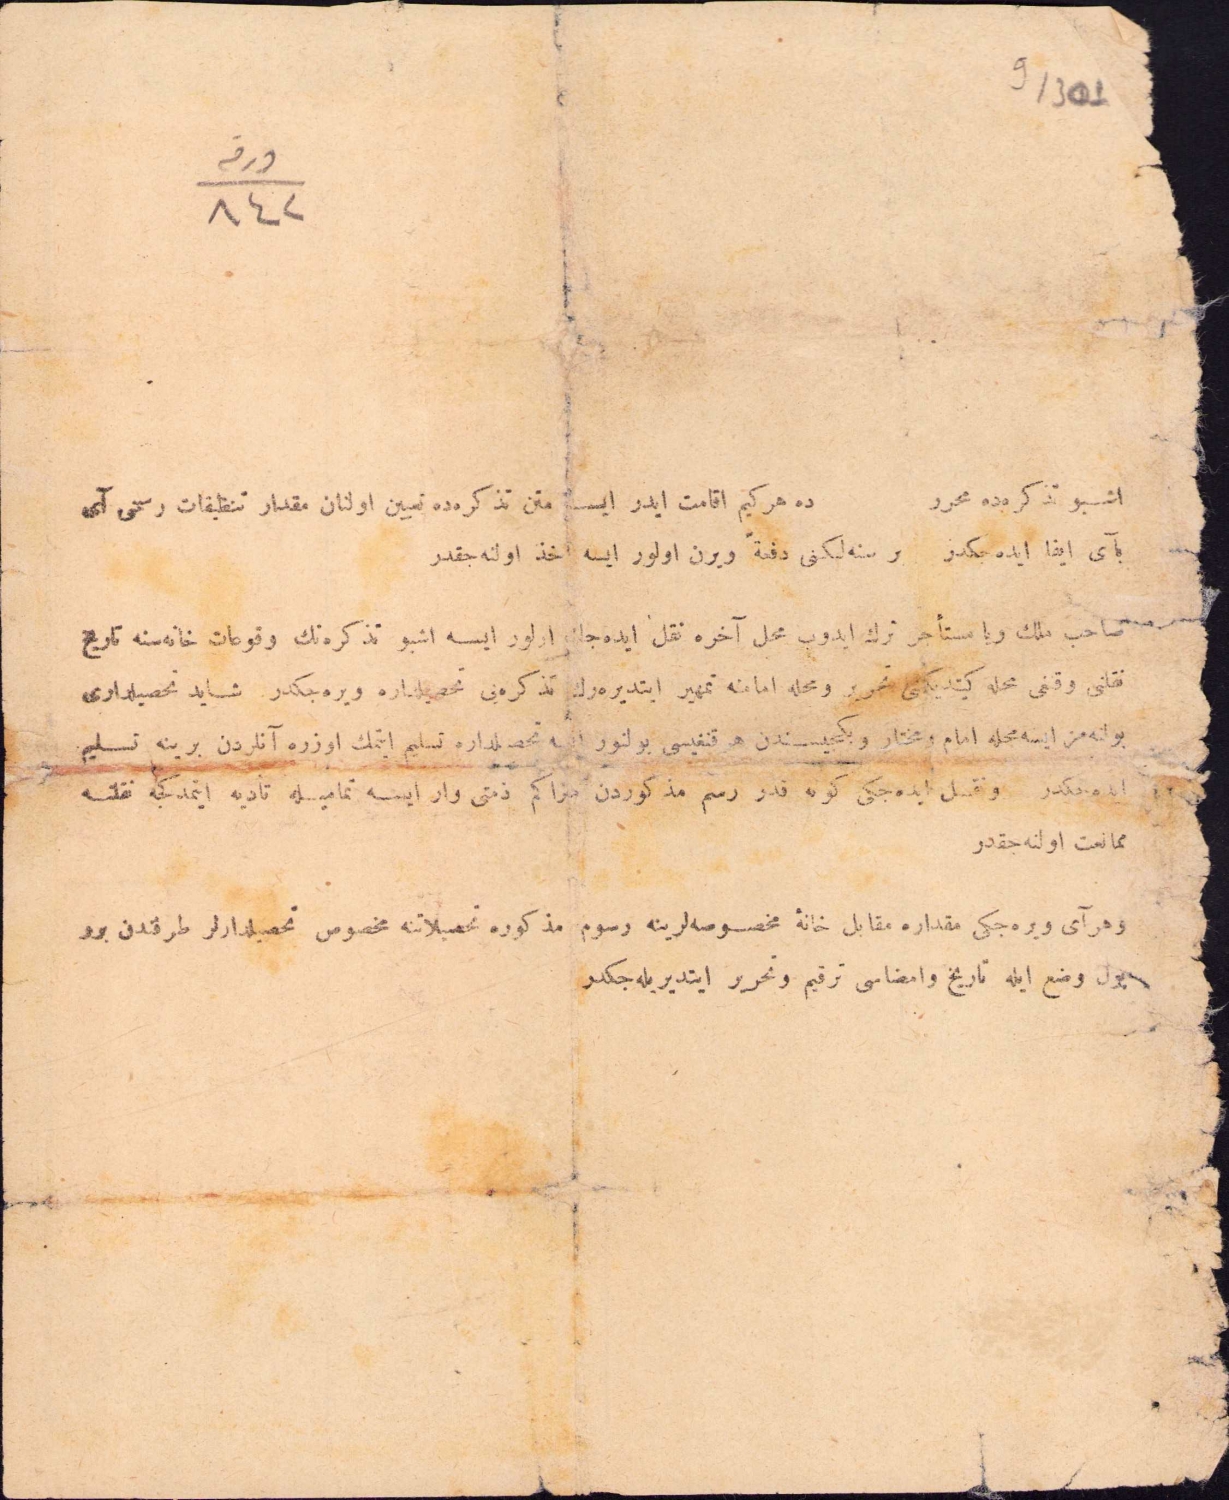 9/301
ورقه
٨٤٢
اشبو تذكره‌ده محرر ده هركيم اقامت ايدر ايسه متن تذكره‌ده تعيين اولنان مقدار تنظيفات رسمنى آى
بآى ايفا ايده‌جكدر بر سنه‌لكنى دفعةً ويرن اولور ايسه اخذ اولنه‌جقدر
صاحب ملك ويا مستأجر ترك ايدوب محل آخره نقل ايده‌جك اولور ايسه اشبو تذكره‌نك وقوعات خانه‌سنه تاريخ
نقلنى وقنغى محله كيتديكنى تحرير ومحله امامنه تمهير ايتديره‌رك تذكره‌يى تحصيلداره ويره‌جكدر شايد تحصيلدارى
بولنه‌مز ايسه محله امام ومختار وبكجيسندن هر قنغيسى بولنور ايسه تحصيلداره تسليم ايتمك اوزره آنلردن برينه تسليم
ايده‌جكدر ونقل ايده‌جكى كونه قدر رسم مذكوردن متراكم ذمتى وار ايسه تماميله تأديه ايتمدكجه نقلنه
ممانعت اولنه‌جقدر
وهر آى ويره‌جكى مقداره مقابل خانۀ مخصوصه‌لرينه رسوم مذكوره تحصيلاتنه مخصوص تحصيلدارلر طرفندن برر
پول وضع ايله تاريخ وامضاسى ترقيم وتحرير ايتديريله‌جكدر